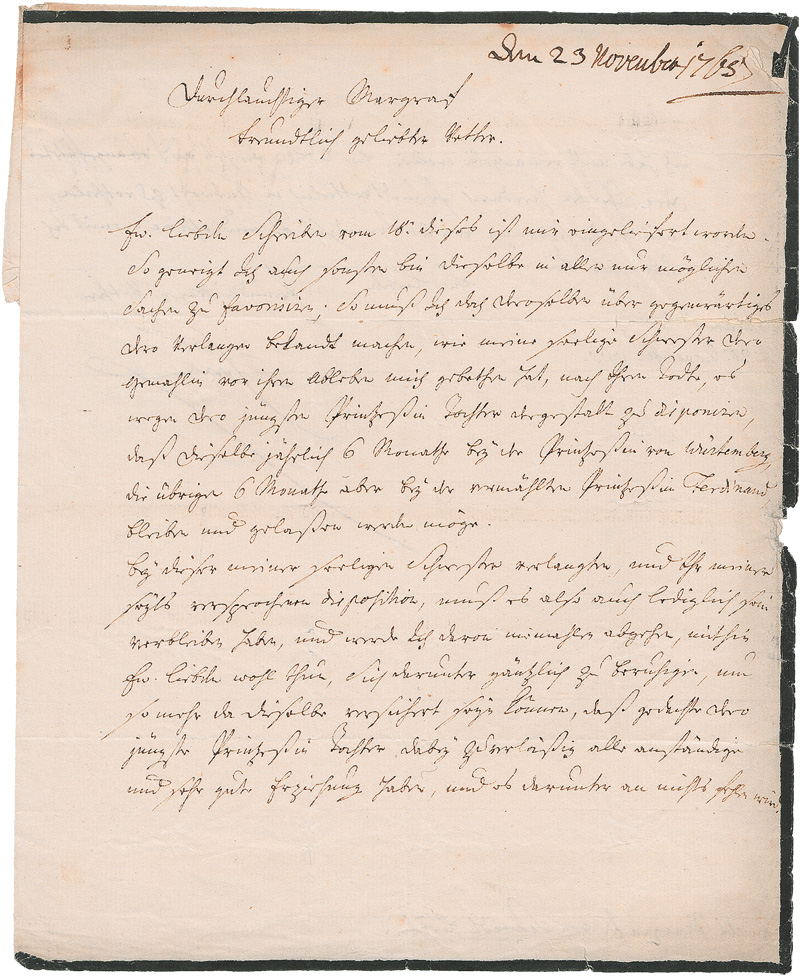 Den 23 November 1765
Durchlauchtiger Margraf
freundtlich geliebter Vetter.
Ew. Liebden Schreiben vom 18. dieses ist mir eingeliefert worden.
So geneigt Ich auch sonsten bin dieselbe in allen nur möglichen
Sachen zu favorisiren; So muß Ich doch deroselben über gegenwärtiges
dero Verlangen bekandt machen, wie meine seelige Schwester dero
Gemahlin vor ihren Ableben mich gebethen hat, nach Ihrem Todte, es
wegen dero jüngsten Printzeßin Tochter dergestalt zu disponiren,
daß dieselbe jährlich 6 Monathe bey der Printzeßin von Würtemberg,
die übrigen 6 Monathe aber bey der vermählten Printzeßin Ferdinand
bleiben und gelaßen werden möge.
bey dieser meiner seeligen Schwester verlangten, und Ihr meiner
seyts versprochenen disposition, muß es also auch lediglich sein
verbleiben haben, und werde Ich davon niemahlen abgehen, mithin
Ew. Liebden wohl thun, Sich darunter gäntzlich zu beruhigen, um
so mehr da dieselbe versichert seyn können, daß gedachte dero
jüngste Printzeßin Tochter dabey zuverläßig alle anständige
und sehr gute Erziehung haben, und es darunter an nichts fehlen wird.